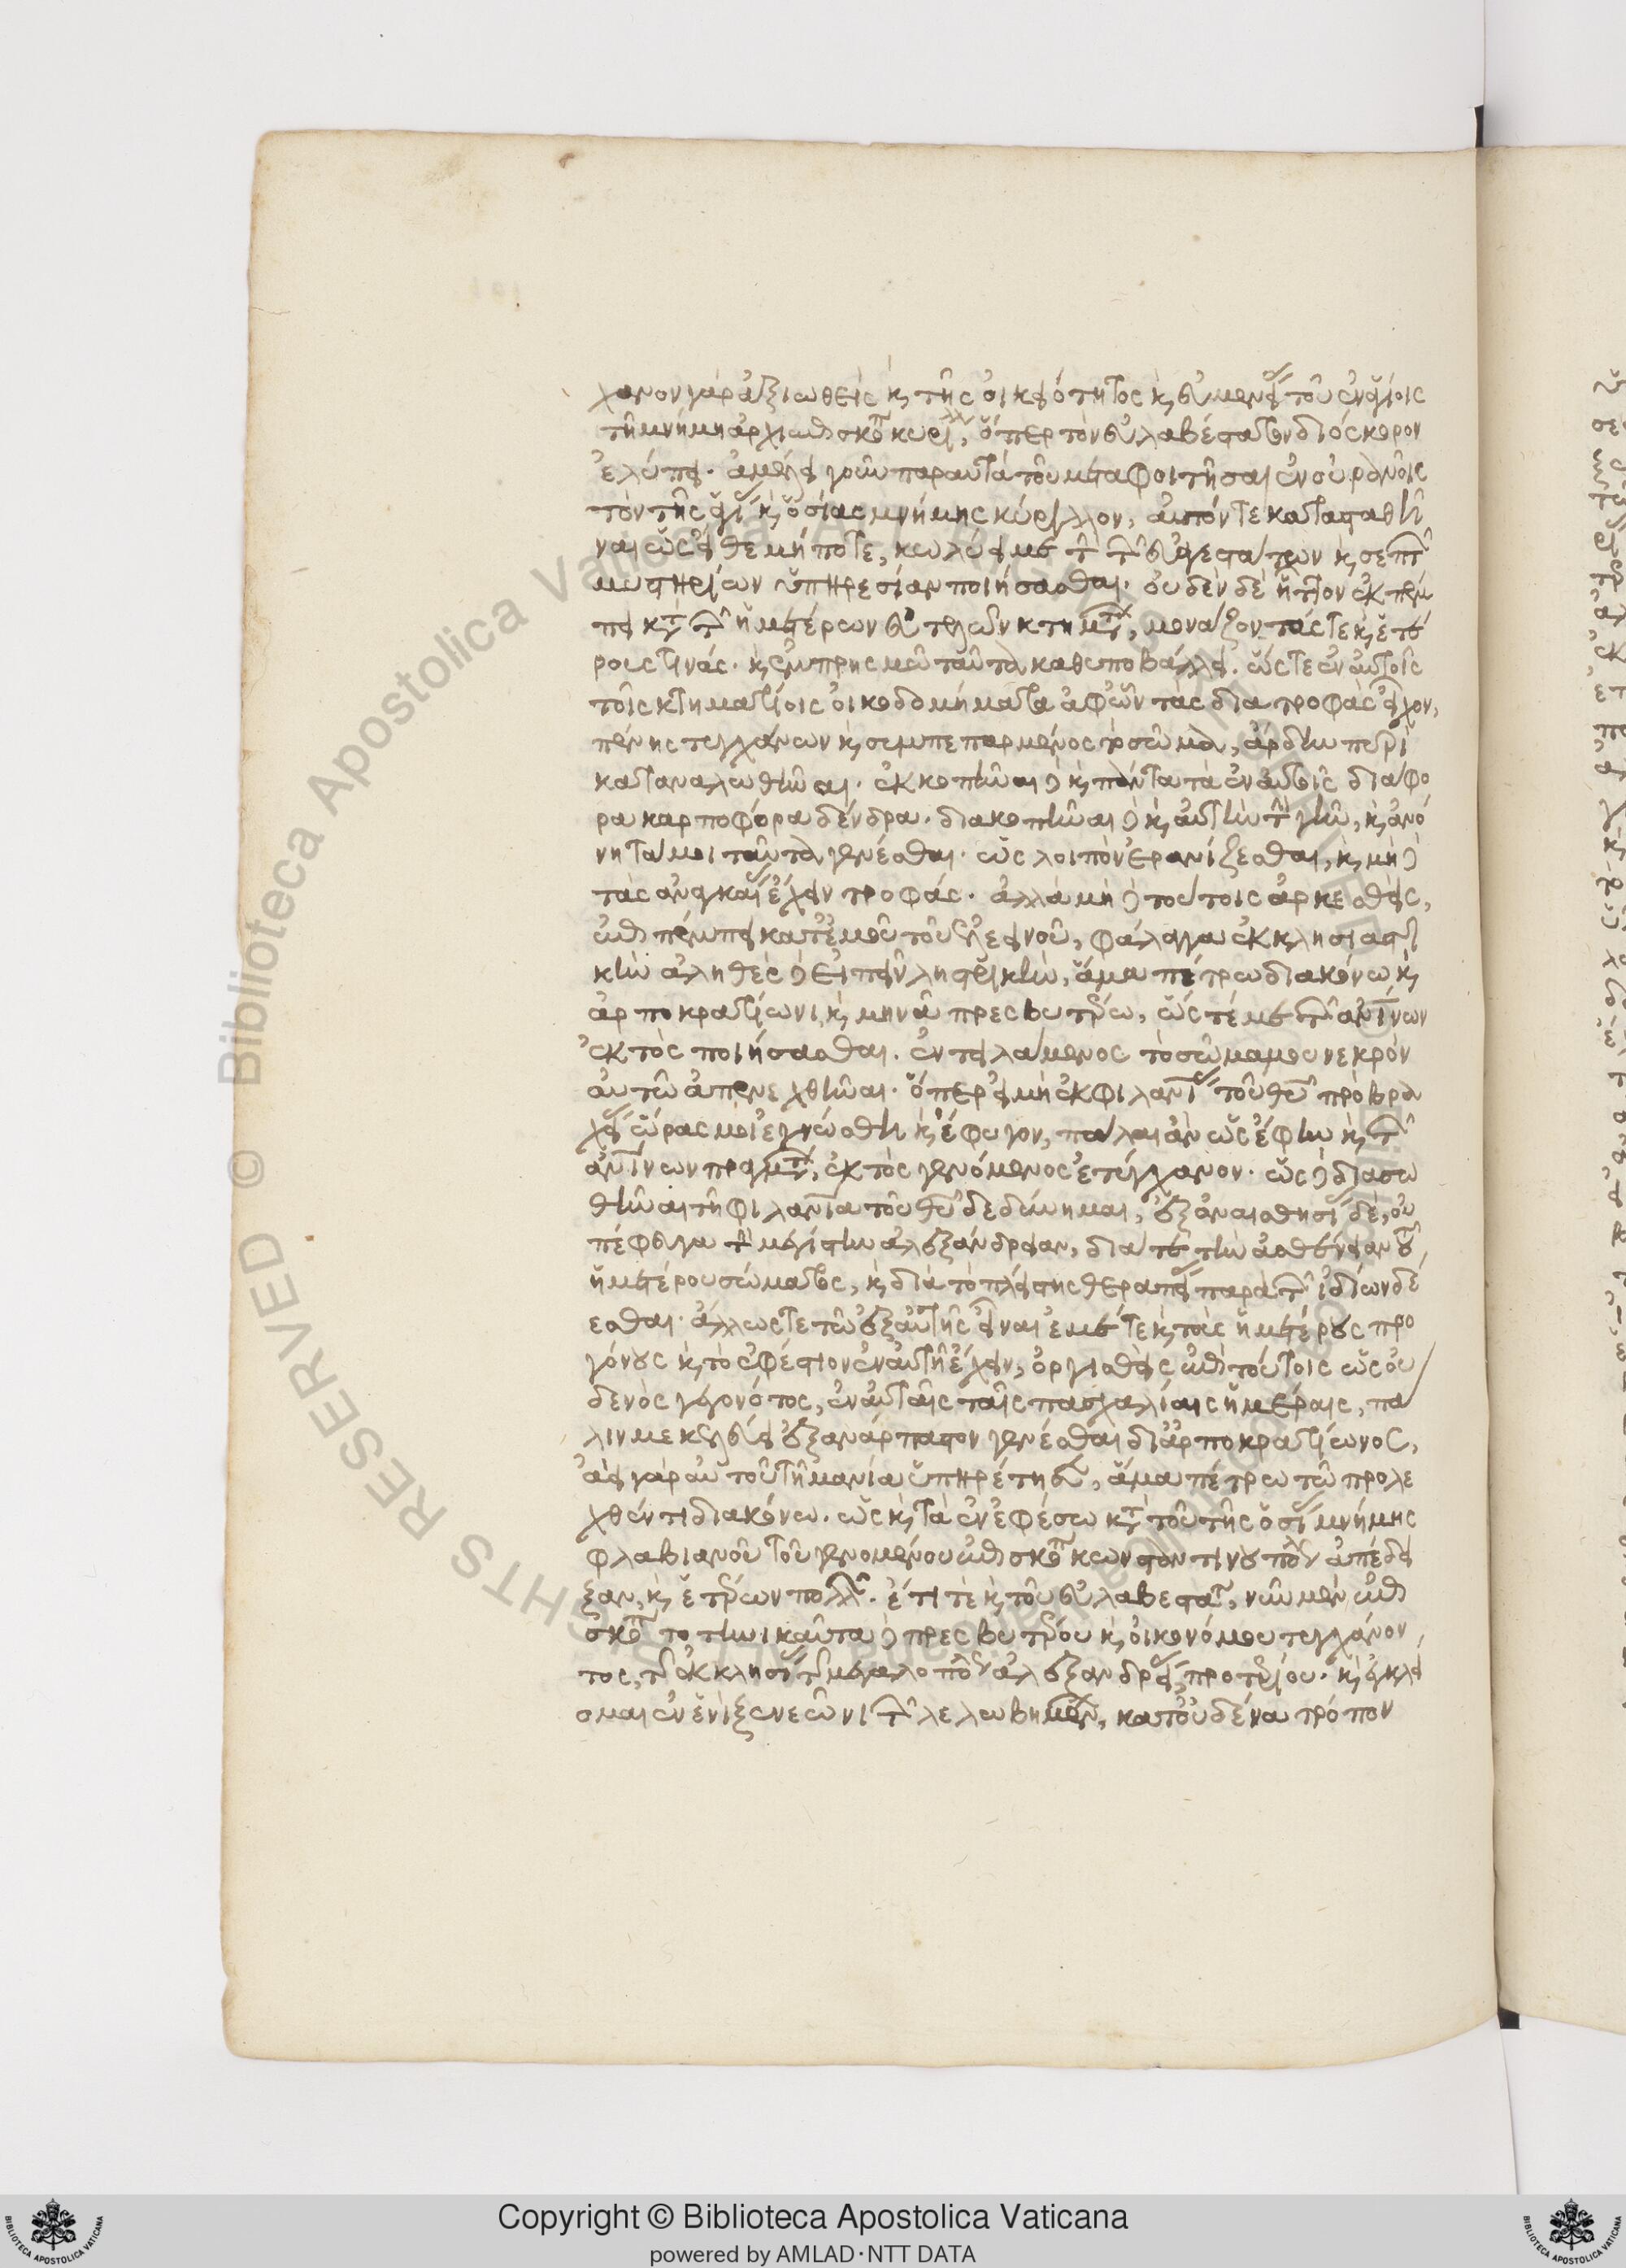 χανον γὰρ ἀξιωθεὶς κ(αὶ) τῆς οἰκειότητος κ(αὶ) εὐμενεί(ας) τοῦ ἐν ἁγίοις
τῇ μνήμῃ ἀρχιεπισκόπ(ου) κυρίλλ(ου), ὅπερ τὸν εὐλαβέστατον διόσκορον
ἐλύπει. ἀμέλει γοῦν παραυτὰ τοῦ μεταφοιτῆσαι ἐν οὐρανοῖς
τὸν τῆς ἁγί(ας) κ(αὶ) ὁσίας μνήμης κύριλλον, αὐτόν τε κατασταθῆ
ναι ὡς εἴθε μήποτε, κωλύει με τὴν τῶν εὐαγεστάτων κ(αὶ) σεπτῶν
μυστηρίων ὑπηρεσίαν ποιήσασθαι. οὐδὲν δὲ ἧττον ἐκπέμ
πει κατὰ τῶν ἡμετέρων εὐτελῶν κτημάτ(ων), μονάζοντάς τε κ(αὶ) ἑτέ
ρους τινάς. κ(αὶ) ἐμπρησμοῦ ταῦτα καθυποβάλλει. ὥς τε ἐν αὐτοῖς
τοῖς κτηματίοις οἰκοδομήματα ἀφ' ὧν τὰς διατροφὰς εἶχον,
πένης τυγχάνων κ(αὶ) συμπεπαρμένος τὸ σῶμα, ἄρδην πυρὶ
καταναλωθῆναι. ἐκκοπῆναι δὲ κ(αὶ) πάντα τὰ ἐν αὐτοῖς διάφο
ρα καρποφόρα δένδρα. διακοπῆναι δὲ κ(αὶ) αὐτὴν τὴν γῆν, κ(αὶ) ἀνό
νητά μοι ταῦτα γενέσθαι. ὡς λοιπὸν ἐρανίζεσθαι, κ(αὶ) μὴ δὲ
τὰς ἀναγκαί(ας) ἔχειν τροφάς. ἀλλὰ μὴ δὲ τούτοις ἀρκεσθεὶς,
ἐπιπέμπει κατ' ἐμοῦ τοῦ ἐλεεινοῦ, φάλαγγα ἐκκλησιαστι
κὴν ἀληθὲς δὲ εἰπεῖν ληστρικὴν, ἅμα πέτρῳ διακόνῳ κ(αὶ)
ἁρποκρατίωνι κ(αὶ) μηνᾷ πρεσβυτέρῳ, ὥς τέ με τῶν ἀν(θρωπ)ίνων
ἐκτὸς ποιήσασθαι. ἐντειλάμενος τὸ σῶμά μου νεκρὸν
αὐτῷ ἀπενεχθῆναι. ὅπερ εἰ μὴ ἐκ φιλαν(θρωπ)ί(ας) τοῦ θ(εο)ῦ πρὸ βρα
χεί(ας) ὥρας μοι ἐγνώσθη κ(αὶ) ἔφυγον, πάλαι ἂν ὡς ἔφην κ(αὶ) τῶν
ἀν(θρωπ)ίνων πραγμάτ(ων), ἐκτὸς γενόμενος ἐτύγχανον. ὡς δὲ διασω
θῆναι τῇ φιλαν(θρωπ)ίᾳ τοῦ θ(εο)ῦ δεδύνημαι, ἐξ ἀναισθησί(ας) δὲ, οὐ
πέφευγα τὴν μεγίστην ἀλεξάνδρειαν, διά τε τὴν ἀσθένειαν τοῦ
ἡμετέρου σώματος, κ(αὶ) διὰ τὸ πλείστης θεραπεί(ας) παρὰ τῶν ἰδίων δέ
εσθαι. ἄλλως τε τῷ ἐξ αὐτῆς εἶναι ἐμέ τε κ(αὶ) τοὺς ἡμετέρους προ
γόνους κ(αὶ) τὸ ἐφέστιον ἐν αὐτῇ ἔχειν, ὀργισθεὶς ἐπὶ τούτοις ὡς οὐ
δενὸς γεγονότος, ἐν αὐταῖς ταῖς πασχαλίαις ἡμέραις, πά
λιν με κελεύει ἐξ ἀνάρπαστον γενέσθαι δι' ἁρποκρατίωνος,
ἀεὶ γὰρ αὐτοῦ τῇ μανίᾳ ὑπηρέτησεν, ἅμα πέτρῳ τῷ προλε
χθέντι διακόνῳ. ὡς κ(αὶ) τὰ ἐν ἐφέσῳ κατὰ τοῦ τῆς ὁσί(ας) μνήμης
φλαβιανοῦ τοῦ γενομένου ἐπισκόπ(ου) κωνσταντινουπόλ(εως) ἀπέδει
ξαν, κ(αὶ) ἑτέρων πολλῶν. ἔτι τὲ κ(αὶ) τοῦ εὐλαβεστάτ(ου), νῦν μὲν ἐπι
σκόπ(ου) τὸ τηνικαῦτα δὲ πρεσβυτέρου κ(αὶ) οἰκονόμου τυγχάνον
τος, τῆς ἐκκλησί(ας) τῆς μεγαλοπόλ(εως) ἀλεξανδρεί(ας), προτερίου. κ(αὶ) ἐγκλεί
ομαι ἐν ἑνὶ ξενεῶνι τῶν λελωβημέν(ων), κατ' οὐδένα τρόπον